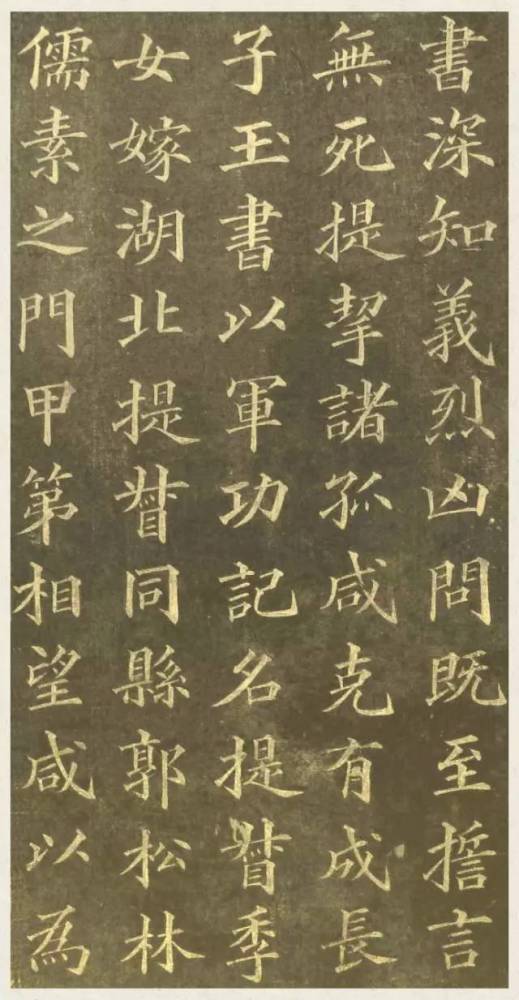 書深知義烈凶問既至誓言
無死提挈諸孤咸克有成長
子玉書以軍功記名提督季
女嫁湖北提督同縣郭松林
儒素之門甲第相望咸以為